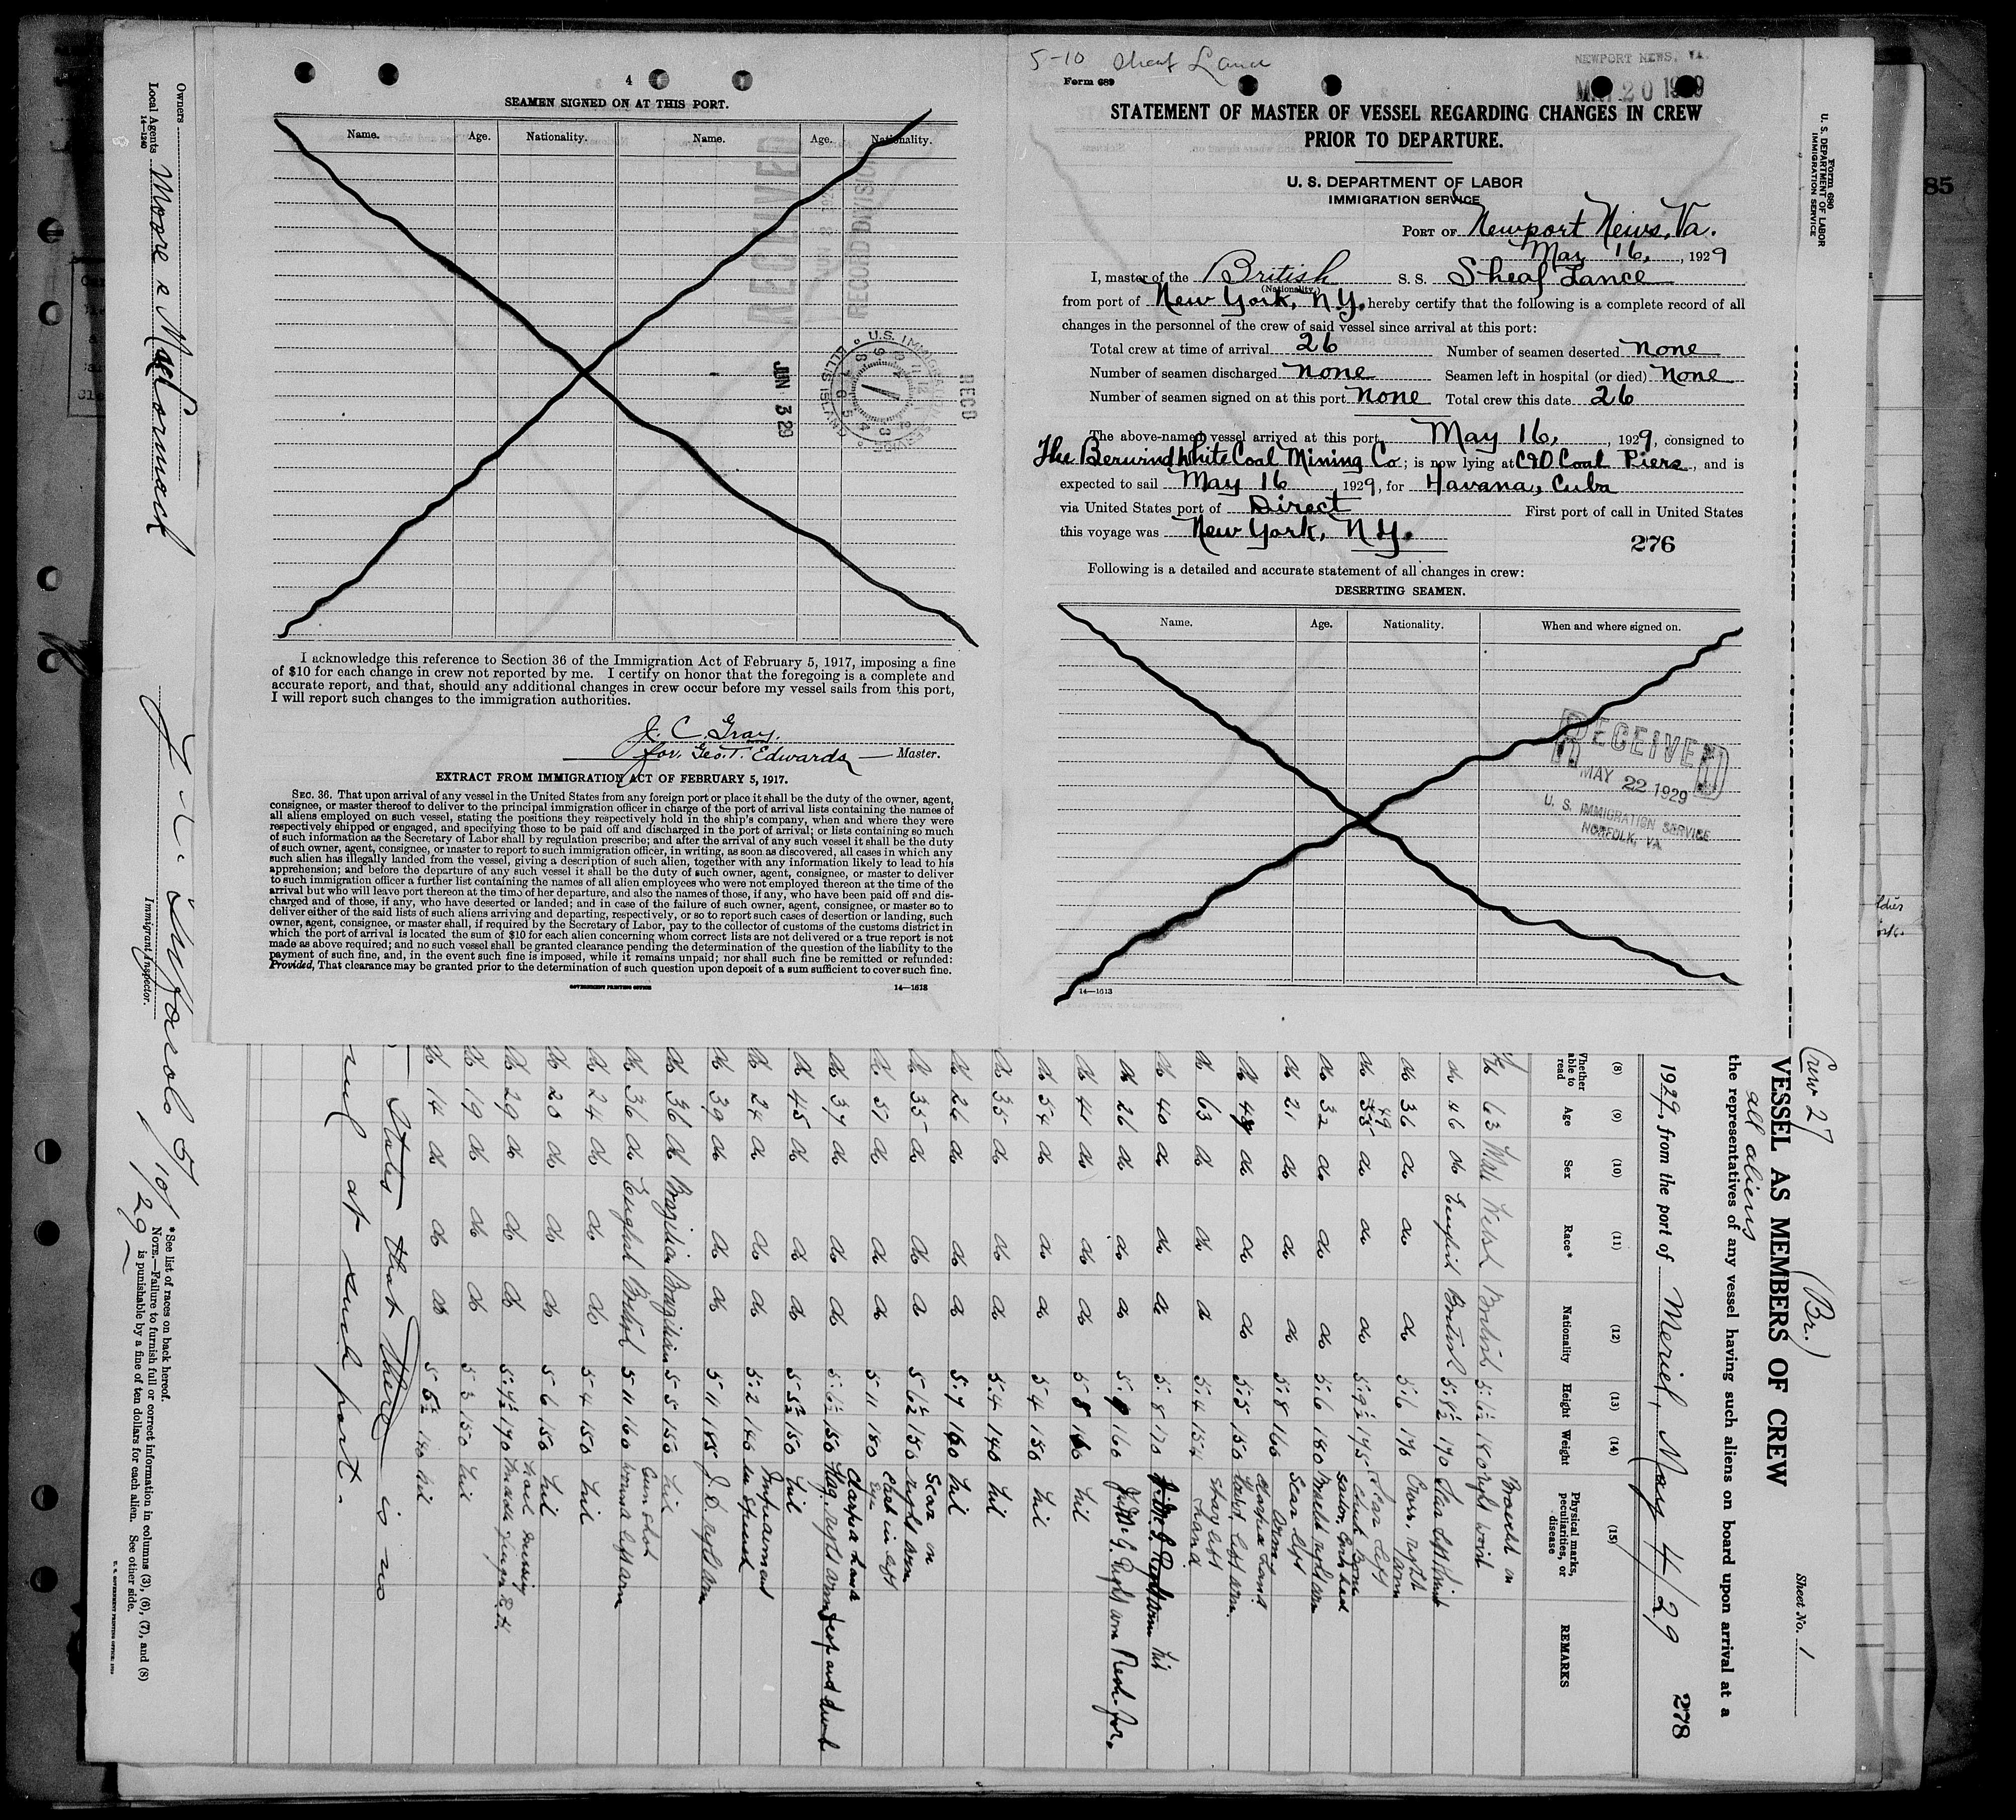 4
SEAMEN SIGNED ON AT THIS PORT.
Name. Age. Nationality. Name. Age. Nationality.
RECEIVED
RECORD DIVISION
JUN 3 29
RECD
U.S. IMMIGRATION SERVICE
I acknowledge this reference to Section 36 of the Immigration Act of February 5, 1917, imposing a fine
of $10 for each change in crew not reported by me. I certify on honor that the foregoing is a complete and
accurate report, and that, should any additional changes in crew occur before my vessel sails from this port,
I will report such changes to the immigration authorities.
J. C. Gray.
for. Geo. T. Edwards Master.
EXTRACT FROM IMMIGRATION ACT OF FEBRUARY 5, 1917.
SEC. 36. That upon arrival of any vessel in the United States from any foreign port or place it shall be the duty of the owner, agent,
consignee, or master thereof to deliver to the principal immigration officer in charge of the port of arrival lists containing the names of
all aliens employed on such vessel, stating the positions they respectively hold in the ship's company, when and where they were
respectively shipped or engaged, and specifying those to be paid off and discharged in the port of arrival; or lists containing so much
of such information as the Secretary of Labor shall by regulation prescribe; and after the arrival of any such vessel it shall be the duty
of such owner, agent, consignee, or master to report to such immigration officer, in writing, as soon as discovered, all cases in which any
such alien has illegally landed from the vessel, giving a description of such alien, together with any information likely to lead to his
apprehension; and before the departure of any such vessel it shall be the duty of such owner, agent, consignee, or master to deliver
to such immigration officer a further list containing the names of all alien employees who were not employed thereon at the time of the
arrival but who will leave port thereon at the time of her departure, and also the names of those, if any, who have been paid off and dis-
charged and of those, if any, who have deserted or landed; and in case of the failure of such owner, agent, consignee, or master so to
deliver either of the said lists of such aliens arriving and departing, respectively, or so to report such cases of desertion or landing, such
owner, agent, consignee, or master shall, if required by the Secretary of Labor, pay to the collector of customs of the customs district in
which the port of arrival is located the sum of $10 for each alien concerning whom correct lists are not delivered or a true report is not
made as above required; and no such vessel shall be granted clearance pending the determination of the question of the liability to the
payment of such fine, and, in the event such fine is imposed, while it remains unpaid; nor shall such fine be remitted or refunded:
Provided, That clearance may be granted prior to the determination of such question upon deposit of a sum sufficient to cover such fine.
GOVERNMENT PRINTING OFFICE 14—1613
5-10 Sheaf Lance
NEWPORT NEWS, VA.
MAY 20 1929
Form 689
STATEMENT OF MASTER OF VESSEL REGARDING CHANGES IN CREW
PRIOR TO DEPARTURE.
U. S. DEPARTMENT OF LABOR
IMMIGRATION SERVICE
PORT OF Newport News, Va.
May 16, , 1929
I, master of the British S. S. Sheaf Lance
(Nationality.)
from port of New York, N.Y. hereby certify that the following is a complete record of all
changes in the personnel of the crew of said vessel since arrival at this port:
Total crew at time of arrival 26 Number of seamen deserted none
Number of seamen discharged none Seamen left in hospital (or died) none
Number of seamen signed on at this port none Total crew this date 26
The above-named vessel arrived at this port May 16, , 1929, consigned to
The Berwind White Coal Mining Co; is now lying at C&O Coal Piers, and is
expected to sail May 16 1929, for Havana, Cuba
via United States port of Direct First port of call in United States
this voyage was New York, N.Y.
276
Following is a detailed and accurate statement of all changes in crew:
DESERTING SEAMEN.
Name. Age. Nationality. When and where signed on.
RECEIVED
MAY 22 1929
U. S. IMMIGRATION SERVICE
NORFOLK, VA.
14—1613
Form 680
U. S. DEPARTMENT OF LABOR
IMMIGRATION SERVICE
85
Crew 27 (Br.)
all aliens
Sheet No. 1
VESSEL AS MEMBERS OF CREW
the representatives of any vessel having such aliens on board upon arrival at a
1929, from the port of Meriel, May 4/29
278
(8) (9) (10) (11) (12) (13) (14) (15)
Whether able to read Age Sex Race* Nationality Height Weight Physical marks, peculiarities, or disease REMARKS
63 Male Welsh British 5.6½ 180 right wrist
do 46 do English British 5.8½ 170 Scar left
do 36 do do do 5.6 176
do 49 do do do 5.9½ 175 Scar left
do 32 do do do 5.6 180 right arm
do 21 do do do 5.8 166 Scar left arm
do do do do 5.5 150 left arm
do 63 do do do 5.4 154 left hand
do 40 do do do 5.8 170 nil
do 26 do do do 5.9 160 right arm
do 41 do do do 5 8 nil
do 54 do do do 5 4 nil
do 35 do do do 5.4 140 nil
do 26 do do do 5.7 160 nil
do 35 do do do 5 6½ 150 Scar on right arm
do 57 do do do 5 11 180 left eye
do 37 do do do 5.6½ 150 right arm
do 45 do do do 5 5½ 150 nil
do 24 do do do 5.2 140
do 39 do do do 5 11 185 right arm
do 36 do Brazilian Brazilian 5 5 150 nil
do 36 do English British 5 11 160 Gun shot wound left arm
do 24 do do do 5 4 150 nil
do 20 do do do 5 6 150 nil
do 29 do do do 5.7½ 170 nail missing middle finger
do 19 do do do 5 3 150 nil
do 14 do do do 5 5½ nil
States that there is no
at such port.
Owners
Local Agents Moore & MacCormack
14—1240
Immigrant Inspector.
5/10/29
*See list of races on back hereof.
NOTE.—Failure to furnish full or correct information in columns (3), (6), (7), and (8)
is punishable by a fine of ten dollars for each alien. See other side.